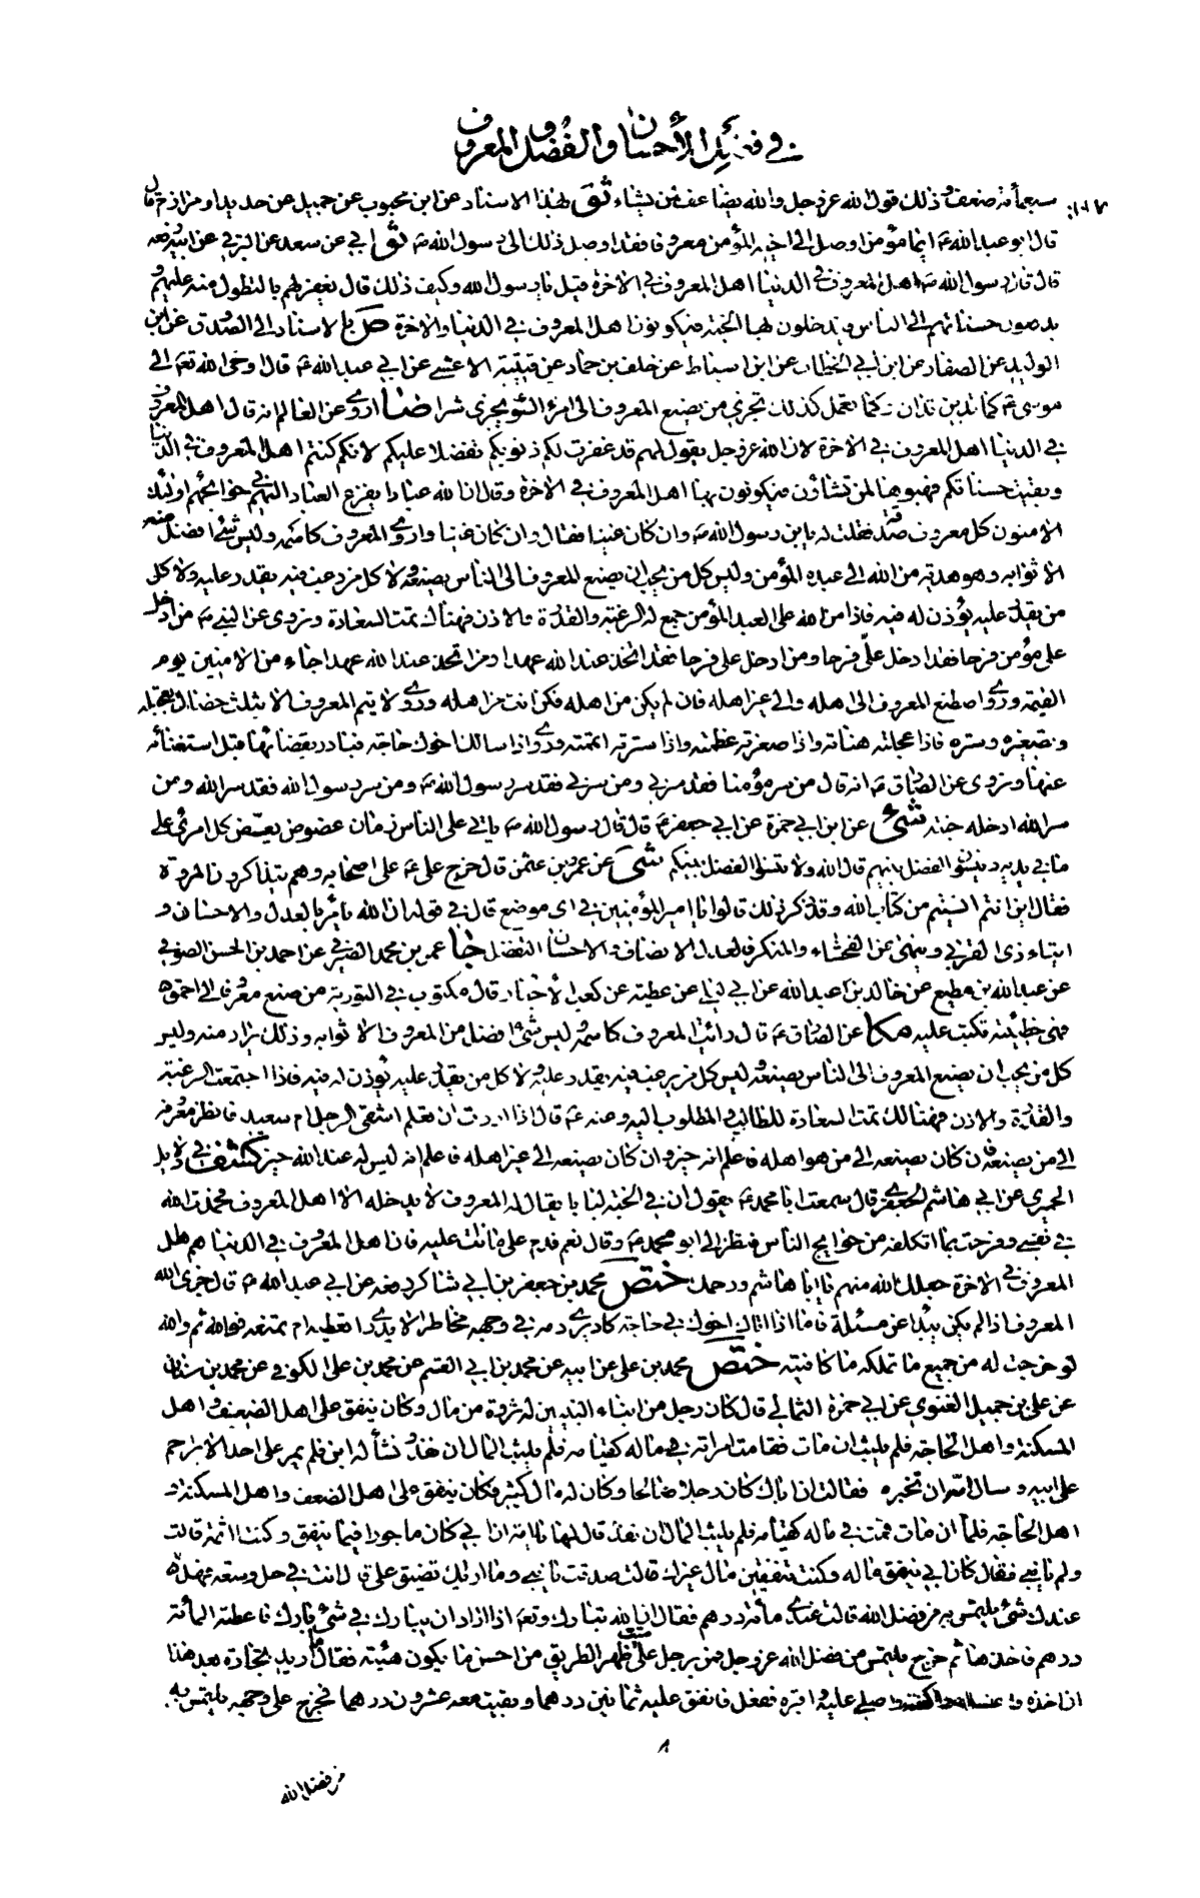 في فضائل الأحسان والفضل والمعروف
سبعمأة ضعف وذلك قول الله عز وجل والله يضاعف لمن يشاء ثو بهذا الاسناد عن ابن محبوب عن جميل عن حديد او مرازم قال
قال ابو عبد الله ع ايما مؤمن اوصل الى اخيه المؤمن معروفا فقد اوصل ذلك الى رسول الله ص ثو ابي عن سعد عن البرقي عن ابيه رفعه
قال قال رسول الله ص اهل المعروف في الدنيا اهل المعروف في الاخرة قيل يا رسول الله وكيف ذلك قال يغفر لهم بالتطول منه عليهم و
يدفعون حسناتهم الى الناس فيدخلون بها الجنة فيكونون اهل المعروف في الدنيا والاخرة بالاسناد الى الصدوق عن ابن
الوليد عن الصفار عن ابن ابي الخطاب عن ابن اسباط عن خلف بن حماد عن قتيبة الاعشى عن ابي عبد الله ع قال اوحى الله تعم الى
موسى ع كما تدين تدان وكما تعمل كذلك تجزى من يصنع المعروف الى امرئ السوء يجزى شرا ضا اروي عن العالم انه قال اهل المعروف
في الدنيا اهل المعروف في الاخرة لان الله عز وجل يقول لهم قد غفرت لكم ذنوبكم تفضلا عليكم لانكم كنتم اهل المعروف في الدنيا
وبقيت حسناتكم فهبوها لمن تشاؤن فيكونون بها اهل المعروف في الاخرة وقال ان لله عبادا يفزع العباد اليهم في حوائجهم اولئك
الامنون كل معروف صدقة فقلت له يا بن رسول الله ص وان كان غنيا فقال وان كان غنيا واروي المعروف كاسمه وليس شئ افضل منه
الا ثوابه وهو هدية من الله الى عبده المؤمن وليس كل من يحب ان يصنع المعروف الى الناس يصنعه ولا كل من رغب فيه يقدر عليه ولا كل
من يقدر عليه يؤذن له فيه فاذا من الله على العبد المؤمن جمع له الرغبة والقدرة والاذن فهناك تمت السعادة ونروي عن النبي ص من ادخل
على مؤمن فرحا فقد ادخل علي فرحا ومن ادخل علي فرحا فقد اتخذ عند الله عهدا ومن اتخذ عند الله عهدا جاء من الامنين يوم
القيمة وروي اصطنع المعروف الى اهله والى غير اهله فان لم يكن من اهله فكن انت من اهله وروي لا يتم المعروف الا بثلث خصال تعجيله
وتصغيره وستره فاذا عجلته هنأته واذا صغرته عظمته واذا سترته اتممته وروي واذا سالك اخوك حاجة فبادر بقضائها قبل استغنائه
عنها ونروي عن الصادق ع انه قال من سر مؤمنا فقد سرني ومن سرني فقد سر رسول الله ص ومن سر رسول الله فقد سر الله ومن
سر الله ادخله جنته شى عن ابن ابي حمزة عن ابي جعفر ع قال قال رسول الله ص ياتي على الناس زمان عضوض يعض كل امرئ على
ما في يديه وينسون الفضل بينهم قال الله ولا تنسوا الفضل بينكم شى عن عمرو بن عثمن قال خرج علي ع على اصحابه وهم يتذاكرون المروة
فقال اين انتم انسيتم من كتاب الله وقد ذكر ذلك قالوا يا امير المؤمنين في اي موضع قال في قوله ان الله يأمر بالعدل والاحسان و
ايتاء ذي القربى وينهى عن الفحشاء والمنكر فالعدل الانصاف والاحسان التفضل جا عمر بن محمد الصيرفي عن احمد بن الحسن الصوفي
عن عبد الله بن مطيع عن خالد بن عبد الله عن ابي ليلى عن عطية عن كعب الاحبار قال مكتوب في التورية من صنع معروفا الى احمق
فهي خطيئة تكتب عليه مكا عن الصادق ع قال رأيت المعروف كاسمه وليس شئ افضل من المعروف الا ثوابه وذلك يراد منه وليس
كل من يحب ان يصنع المعروف الى الناس يصنعه وليس كل من يرغب فيه يقدر عليه ولا كل من يقدر عليه يؤذن له فيه فاذا اجتمعت الرغبة
والقدرة والاذن فهنالك تمت السعادة للطالب والمطلوب اليه وعنه ع قال اذا اردت ان تعلم اشقي الرجل ام سعيد فانظر معروفه
الى من يصنعه فان كان يصنعه الى من هو اهله فاعلم انه خير وان كان يصنعه الى غير اهله فاعلم انه ليس له عند الله خير كشف في دلايل
الحميري عن ابي هاشم الجعفري قال سمعت ابا محمد ع يقول ان في الجنة لبابا يقال له المعروف لا يدخله الا اهل المعروف فحمدت الله
في نفسي وفرحت بما اتكلفه من حوايج الناس فنظر الي ابو محمد ع وقال نعم فدم على ما انت عليه فان اهل المعروف في الدنيا هم اهل
المعروف في الاخرة جعلك الله منهم يا ابا هاشم ورحمك ختص محمد بن جعفر بن ابي شاكر رفعه عن ابي عبد الله ع قال جزى الله
المعروف اذا لم يكن يبدأ عن مسئلة فاما اذا اتاك اخوك في حاجة كاد يرى دمه في وجهه مخاطرا لا يدري اتعطيه ام تمنعه فوالله ثم والله
لو خرجت له من جميع ما تملكه ما كافيته ختص محمد بن علي عن ابيه عن محمد بن ابي القسم عن محمد بن علي الكوفي عن محمد بن سنان
عن علي بن جميل الغنوي عن ابي حمزة الثمالي قال كان رجل من ابناء النبيين له ثروة من مال وكان ينفق على اهل الضعف و اهل
المسكنة واهل الحاجة فلم يلبث ان مات فقامت امراته في ماله كقيامه فلم يلبث المال ان نفد ونشأ له ابن فلم يمر على احد الا ترحم
على ابيه وسال امه ان تخبره فقالت ان اباك كان رجلا صالحا وكان له مال كثير فكان ينفق على اهل الضعف واهل المسكنة و
اهل الحاجة فلما ان مات قمت في ماله كقيامه فلم يلبث المال ان نفد قال لها يا امه ان ابي كان ماجورا فيما ينفق وكنت اثمة قالت
ولم يا بني فقال كان ابي ينفق ماله وكنت تنفقين مال غيرك قالت صدقت يا بني وما اراك تضيق علي قال انت في حل وسعة فهل
عندك شئ يلتمس به من فضل الله قالت عندي مأة درهم فقال ان الله تبارك وتعم اذا اراد ان يبارك في شئ بارك فاعطته المأة
درهم فاخذها ثم خرج يلتمس من فضل الله عز وجل فمر برجل ميت على ظهر الطريق من احسن ما يكون هيئة فقال ما اريد تجارة بعد هذا
ان اخذه و اغسله و اكفنه واصلي عليه و اقبره ففعل فانفق عليه ثمانين درهما وبقيت معه عشرون درهما فخرج على وجهه يلتمس به
٨
من فضل الله